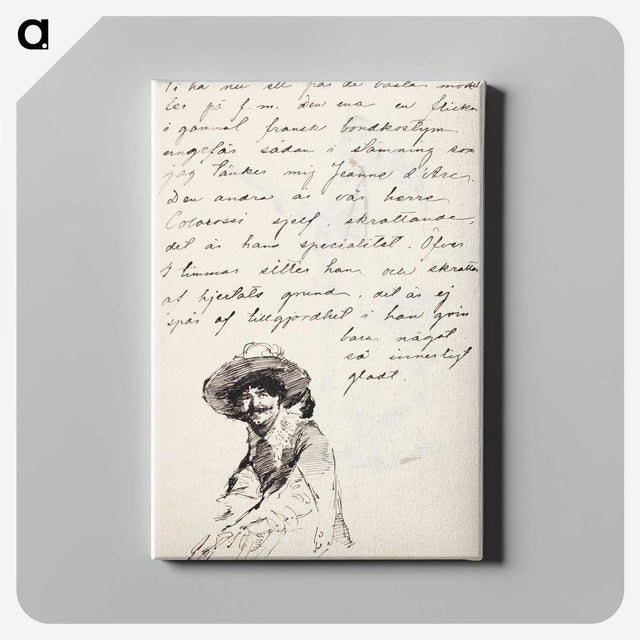 a
Vi ha nu ett par de bästa model
ler på f.m. Den ena en flicka
i gammal fransk bondkostym
ungefär sådan i stämning som
jag tänker mig Jeanne d'Arc.
Den andra är vår herre
Colarossi sjelf, skrattande,
det är hans specialitet. Öfver
timmar sitter han och skrattar
af hjertats grund, det är ej
spår af tillgjordhet i han grin
bara något
så innerligt
gladt.